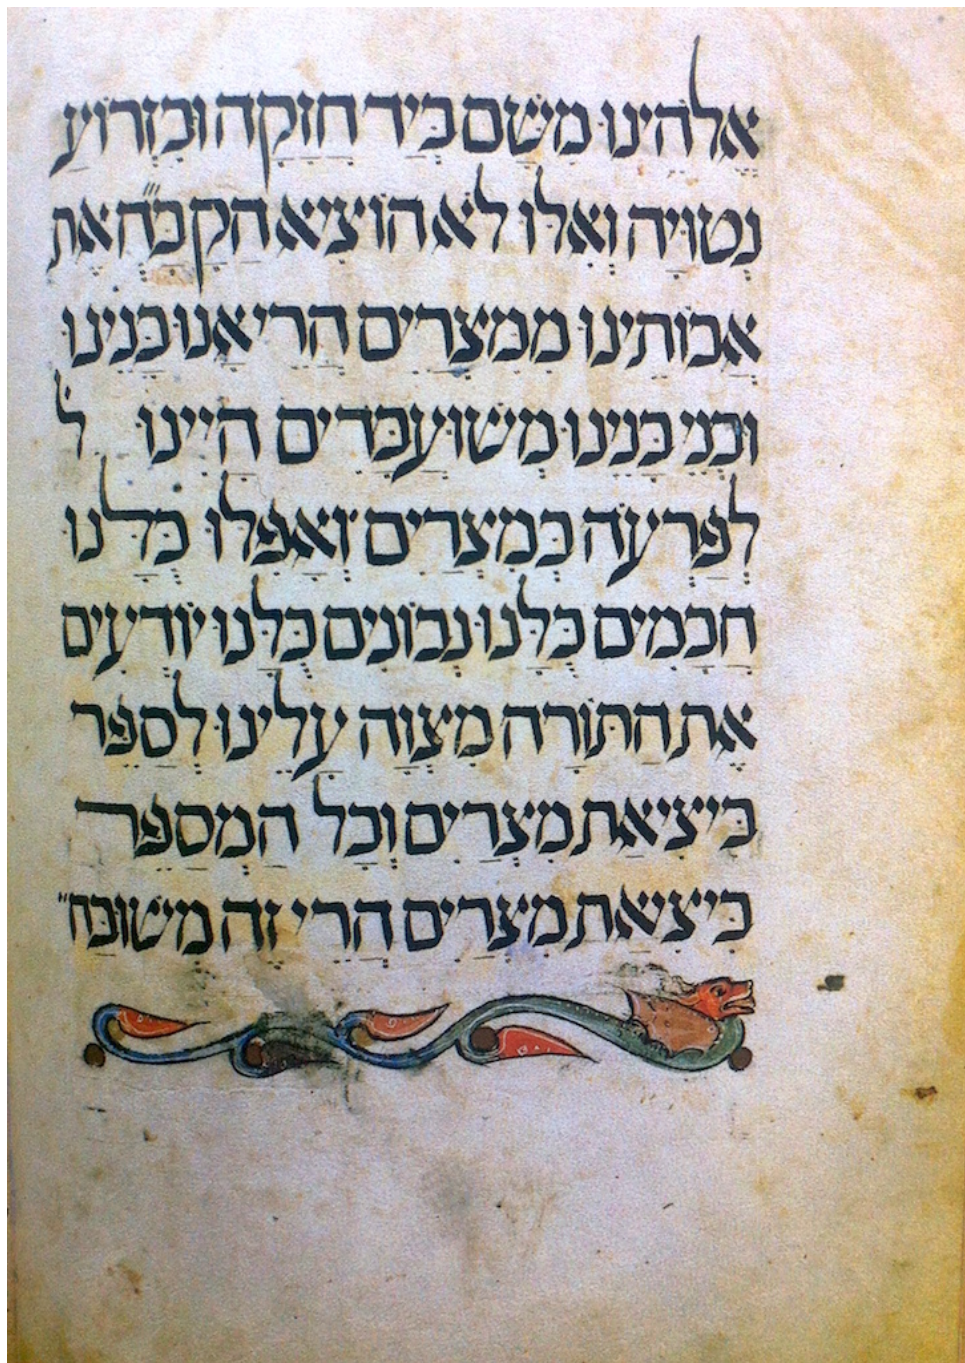 אלהינו משם ביד חזקה ובזרוע
נטויה ואלו לא הוציא הקב״ה את
אבותינו ממצרים הרי אנו בנינו
ובני בנינו משועבדים היינו ל
לפרעה במצרים ואפלו כלנו
חכמים כלנו נבונים כלנו יודעים
את התורה מצוה עלינו לספר
ביציאת מצרים וכל המספר
ביציאת מצרים הרי זה משובח״